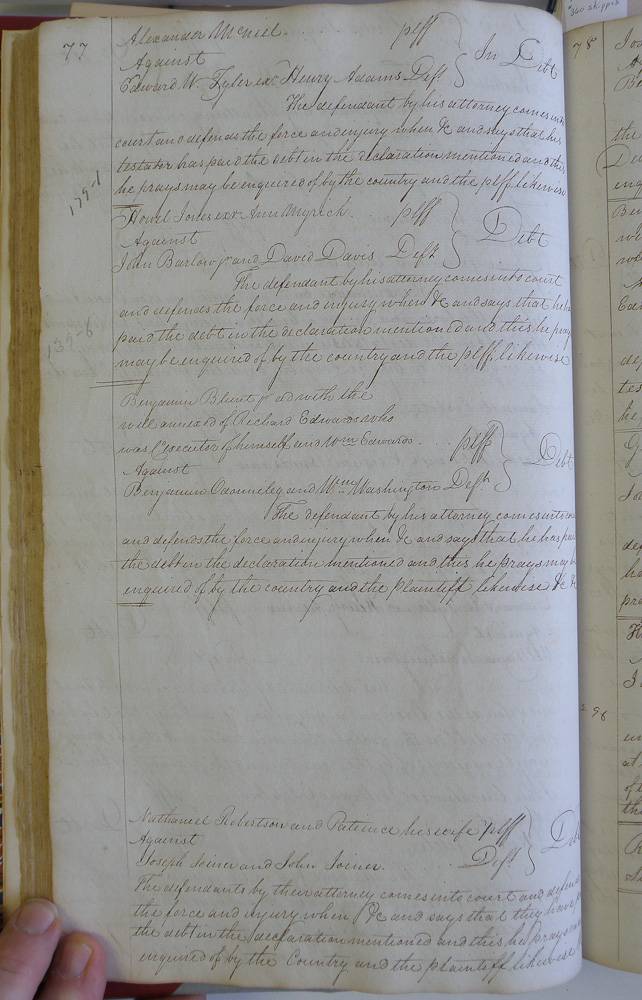 77
Alexander McNiel . . plff
Against
Edward W. Tyler exr Henry Adams Deft
In Debt
The defendant by his attorney comes into
court and defends the force and injury when &c and says that his
testator has paid the debt in the declaration mentioned and this
he prays may be enquired of by the country and the plff. likewise
139-1
Howel Jones exr Ann Myrick . . plff
Against
John Barlow jr and David Davis Defts
Debt
The defendant by his attorney comes into court
and defends the force and injury when &c and says that he has
paid the debt in the declaration mentioned and this he prays
may be enquired of by the country and the plff. likewise
139-8
Benjamin Blunt jr ad with the
will annexed of Richard Edwards who
was exécutor of himself and Wm Edwards . . plff
Against
Benjamin and Wm Washington Defts
Debt
The defendant by his attorney comes into
and defends the force and injury when &c and says that he has
the debt in the declaration mentioned and this he prays may be
enquired of by the country and the plaintiff likewise &c &c
Nathaniel Robertson and Patience his wife plff
Against
Joseph Joiner and John Joiner. Deft
Debt
The defendants by their attorney comes into court and defends
the force and injury when &c and says that they have
the debt in the declaration mentioned and this he prays
enquired of by the Country and the plaintiff likewise
78